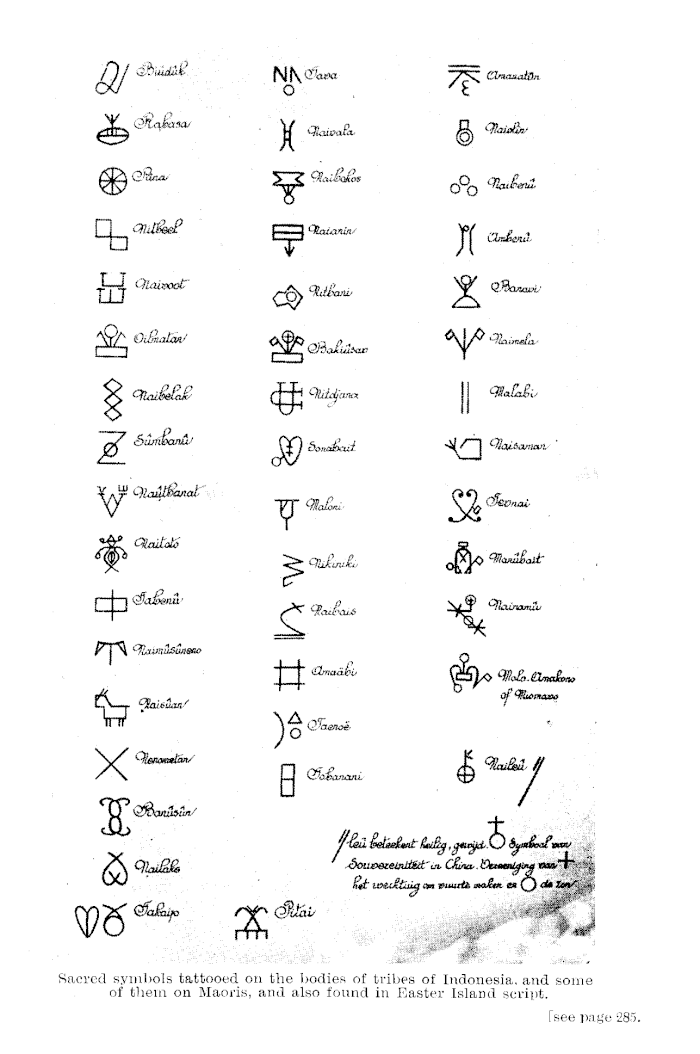 Buidûk
Rabasa
Pûna
Nitbeel
Naivoot
Oilmatan
Naibelak
Sûmbanû
Naûtbanat
Naitoto
Tabenû
Naimûsûneno
Naisûan
Nenometan
Banûsûn
Nailako
Takaip
Pitai
Tava
Naivala
Naibakos
Naianin
Nitbani
Bakûîsan
Nitdjana
Sonabait
Maloni
Nikiniki
Naibais
Anaäbi
Taenoë
Tobanani
Amanatûn
Naiolin
Naibenû
Ambenû
Banavi
Naimela
Malabi
Naisaman
Tevnai
Manûbait
Nainamû
Molo-Anakono
of Miomavo
Naileû
leû beteekent heilig, gewijd. Symbool van
Souvereiniteit in China. Vereeniging van
het werktuig om vuurte maken en de zon
Sacred symbols tattooed on the bodies of tribes of Indonesia, and some
of them on Maoris, and also found in Easter Island script.
[see page 285.